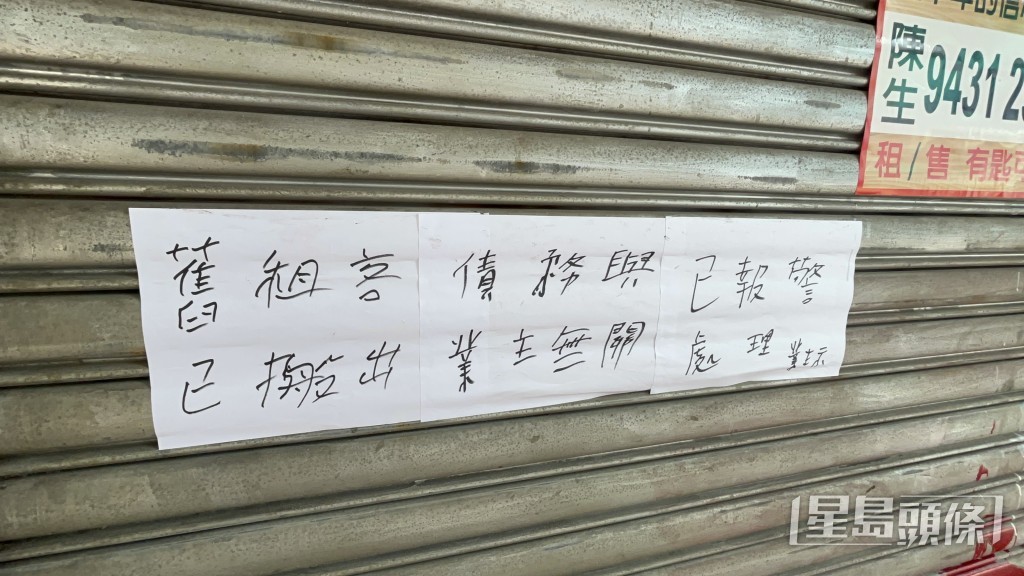 舊租客
已搬出
債務與
業主無關
已報警
處理 業主示
的信
陳生 94312
租/售 有匙可
星島頭條